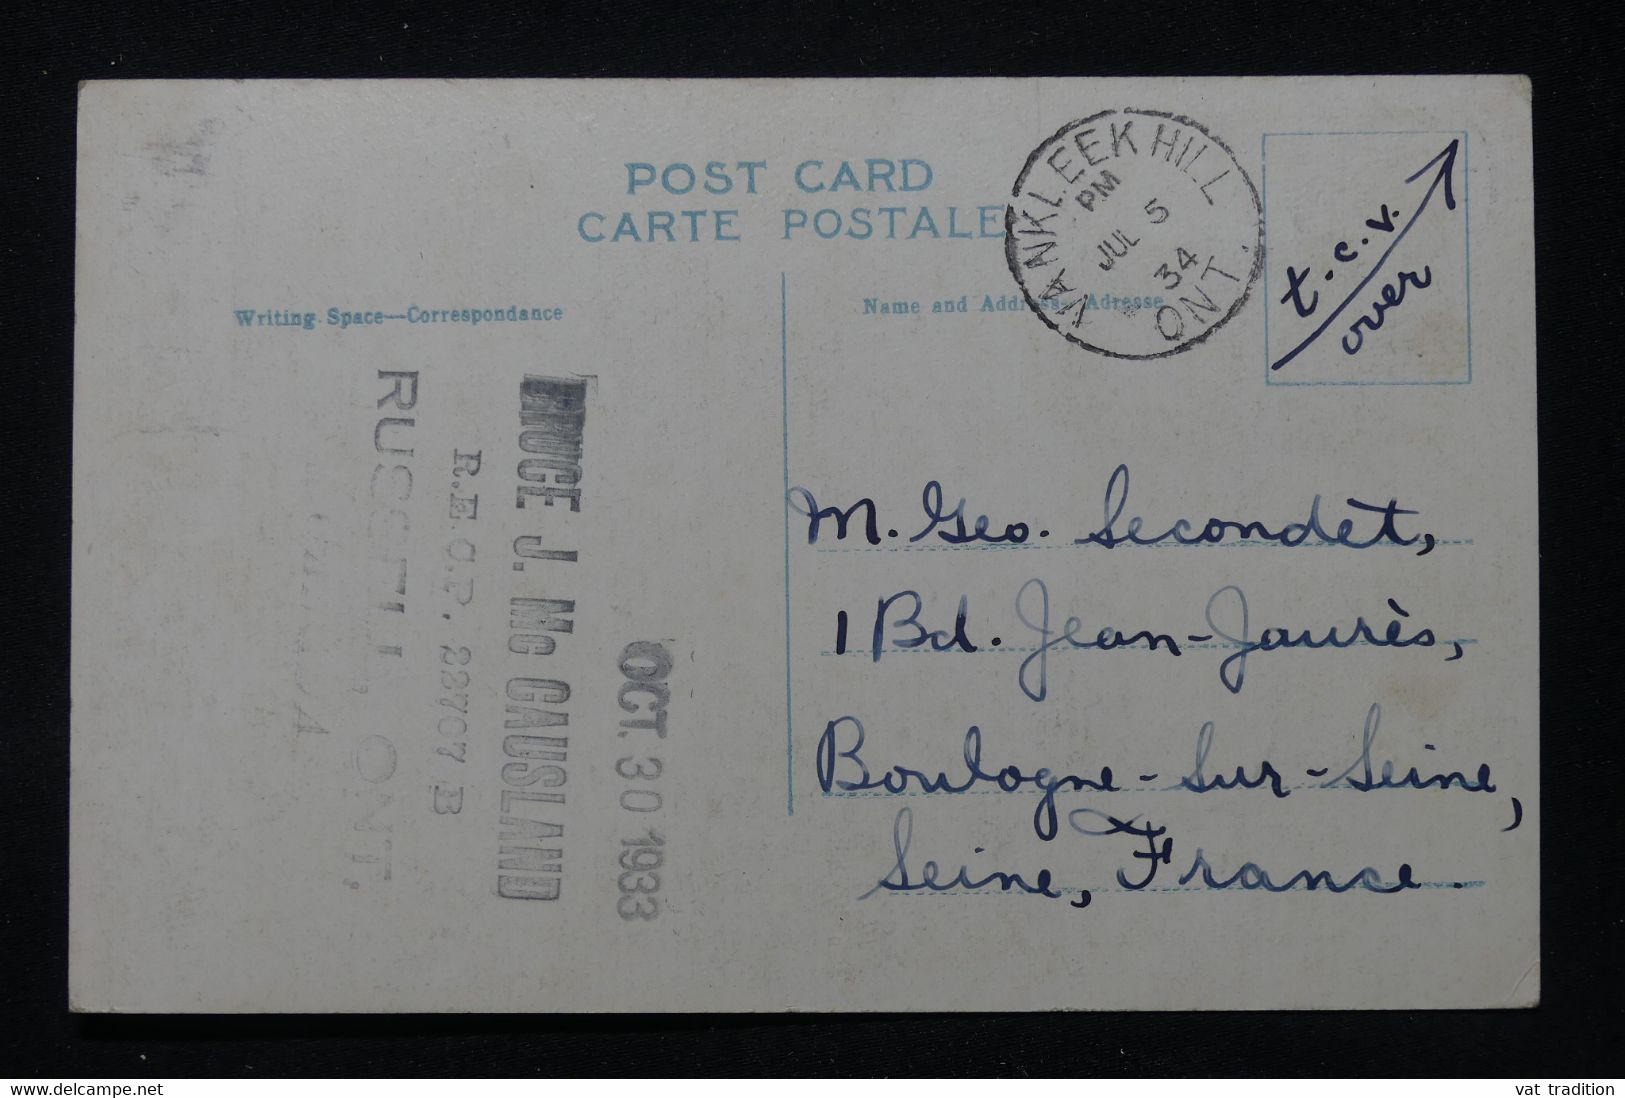 POST CARD
CARTE POSTALE
VANKLEEK HILL
PM
JUL 5
34
ONT.
t.c.v.
over
Writing Space—Correspondance
Name and Address—Adresse
BRUCE J. McCAUSLAND
R.E.C.P. 23707 B
RUSSELL, ONT.
OCT. 30 1933
M. Geo. Secondèt,
1 Bd. Jean-Jaurès,
Boulogne-sur-Seine,
Seine, France.
©delcampe.net
vat_tradition